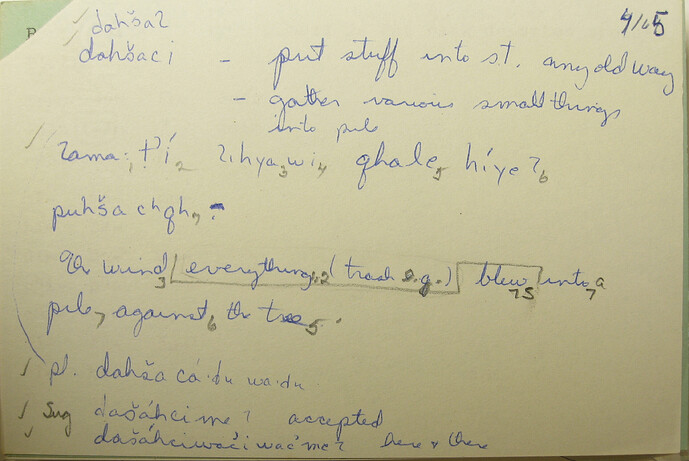 dahšaʔ 4/65
dahšaci - put stuff into s.t. any old way
- gather various small things
into pile
ʔama:₁ t'í₂ ʔihya₃wi₄ qhale₅ híyeʔ₆
puhšachqh₇
The wind₃ everything₁,₂ (trash e.g.) blew₇ into₇ a
pile₇ against₆ the tree₅.
pl. dahšacá·du wa·du
Sug dašáhcimeʔ accepted
dašáhciwačiwačmeʔ here & there